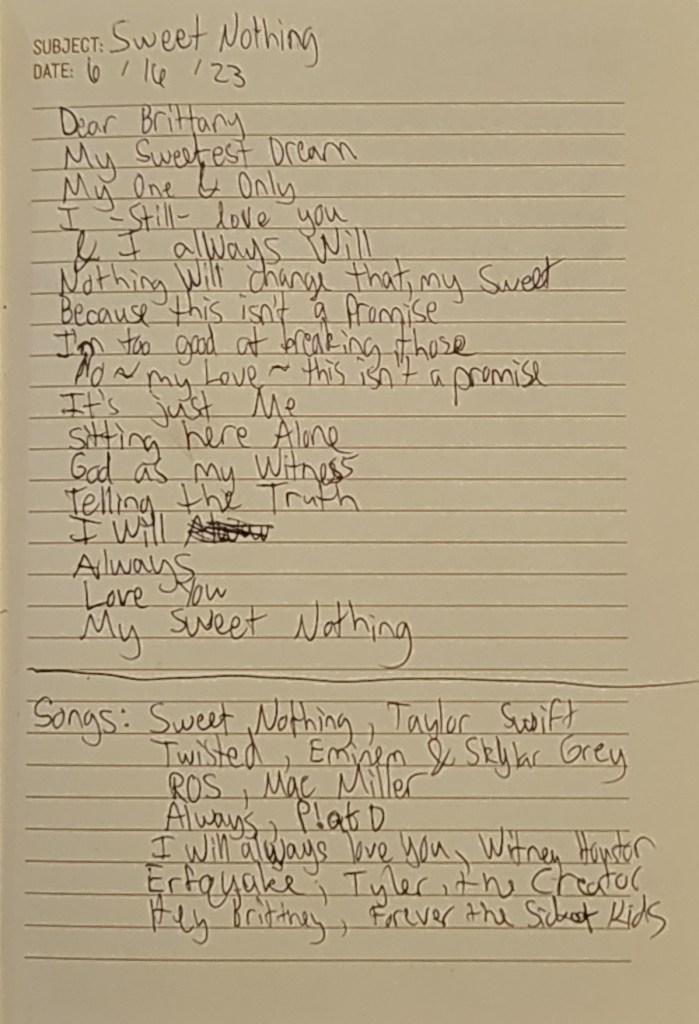 SUBJECT: Sweet Nothing
DATE: 6 / 16 / 23
Dear Brittany
My Sweetest Dream
My One & Only
I -Still- love you
& I always Will
Nothing Will change that, my Sweet
Because this isn't a Promise
I'm too good at breaking those
No ~ my Love ~ this isn't a promise
It's just Me
Sitting here Alone
God as my Witness
Telling the Truth
I Will
Always
Love You
My Sweet Nothing
Songs: Sweet Nothing, Taylor Swift
Twisted, Eminem & Skylar Grey
ROS, Mac Miller
Always, P!atD
I Will always love you, Witney Houston
Erfquake, Tyler, the Creator
Hey Brittney, Forever the Sickest Kids